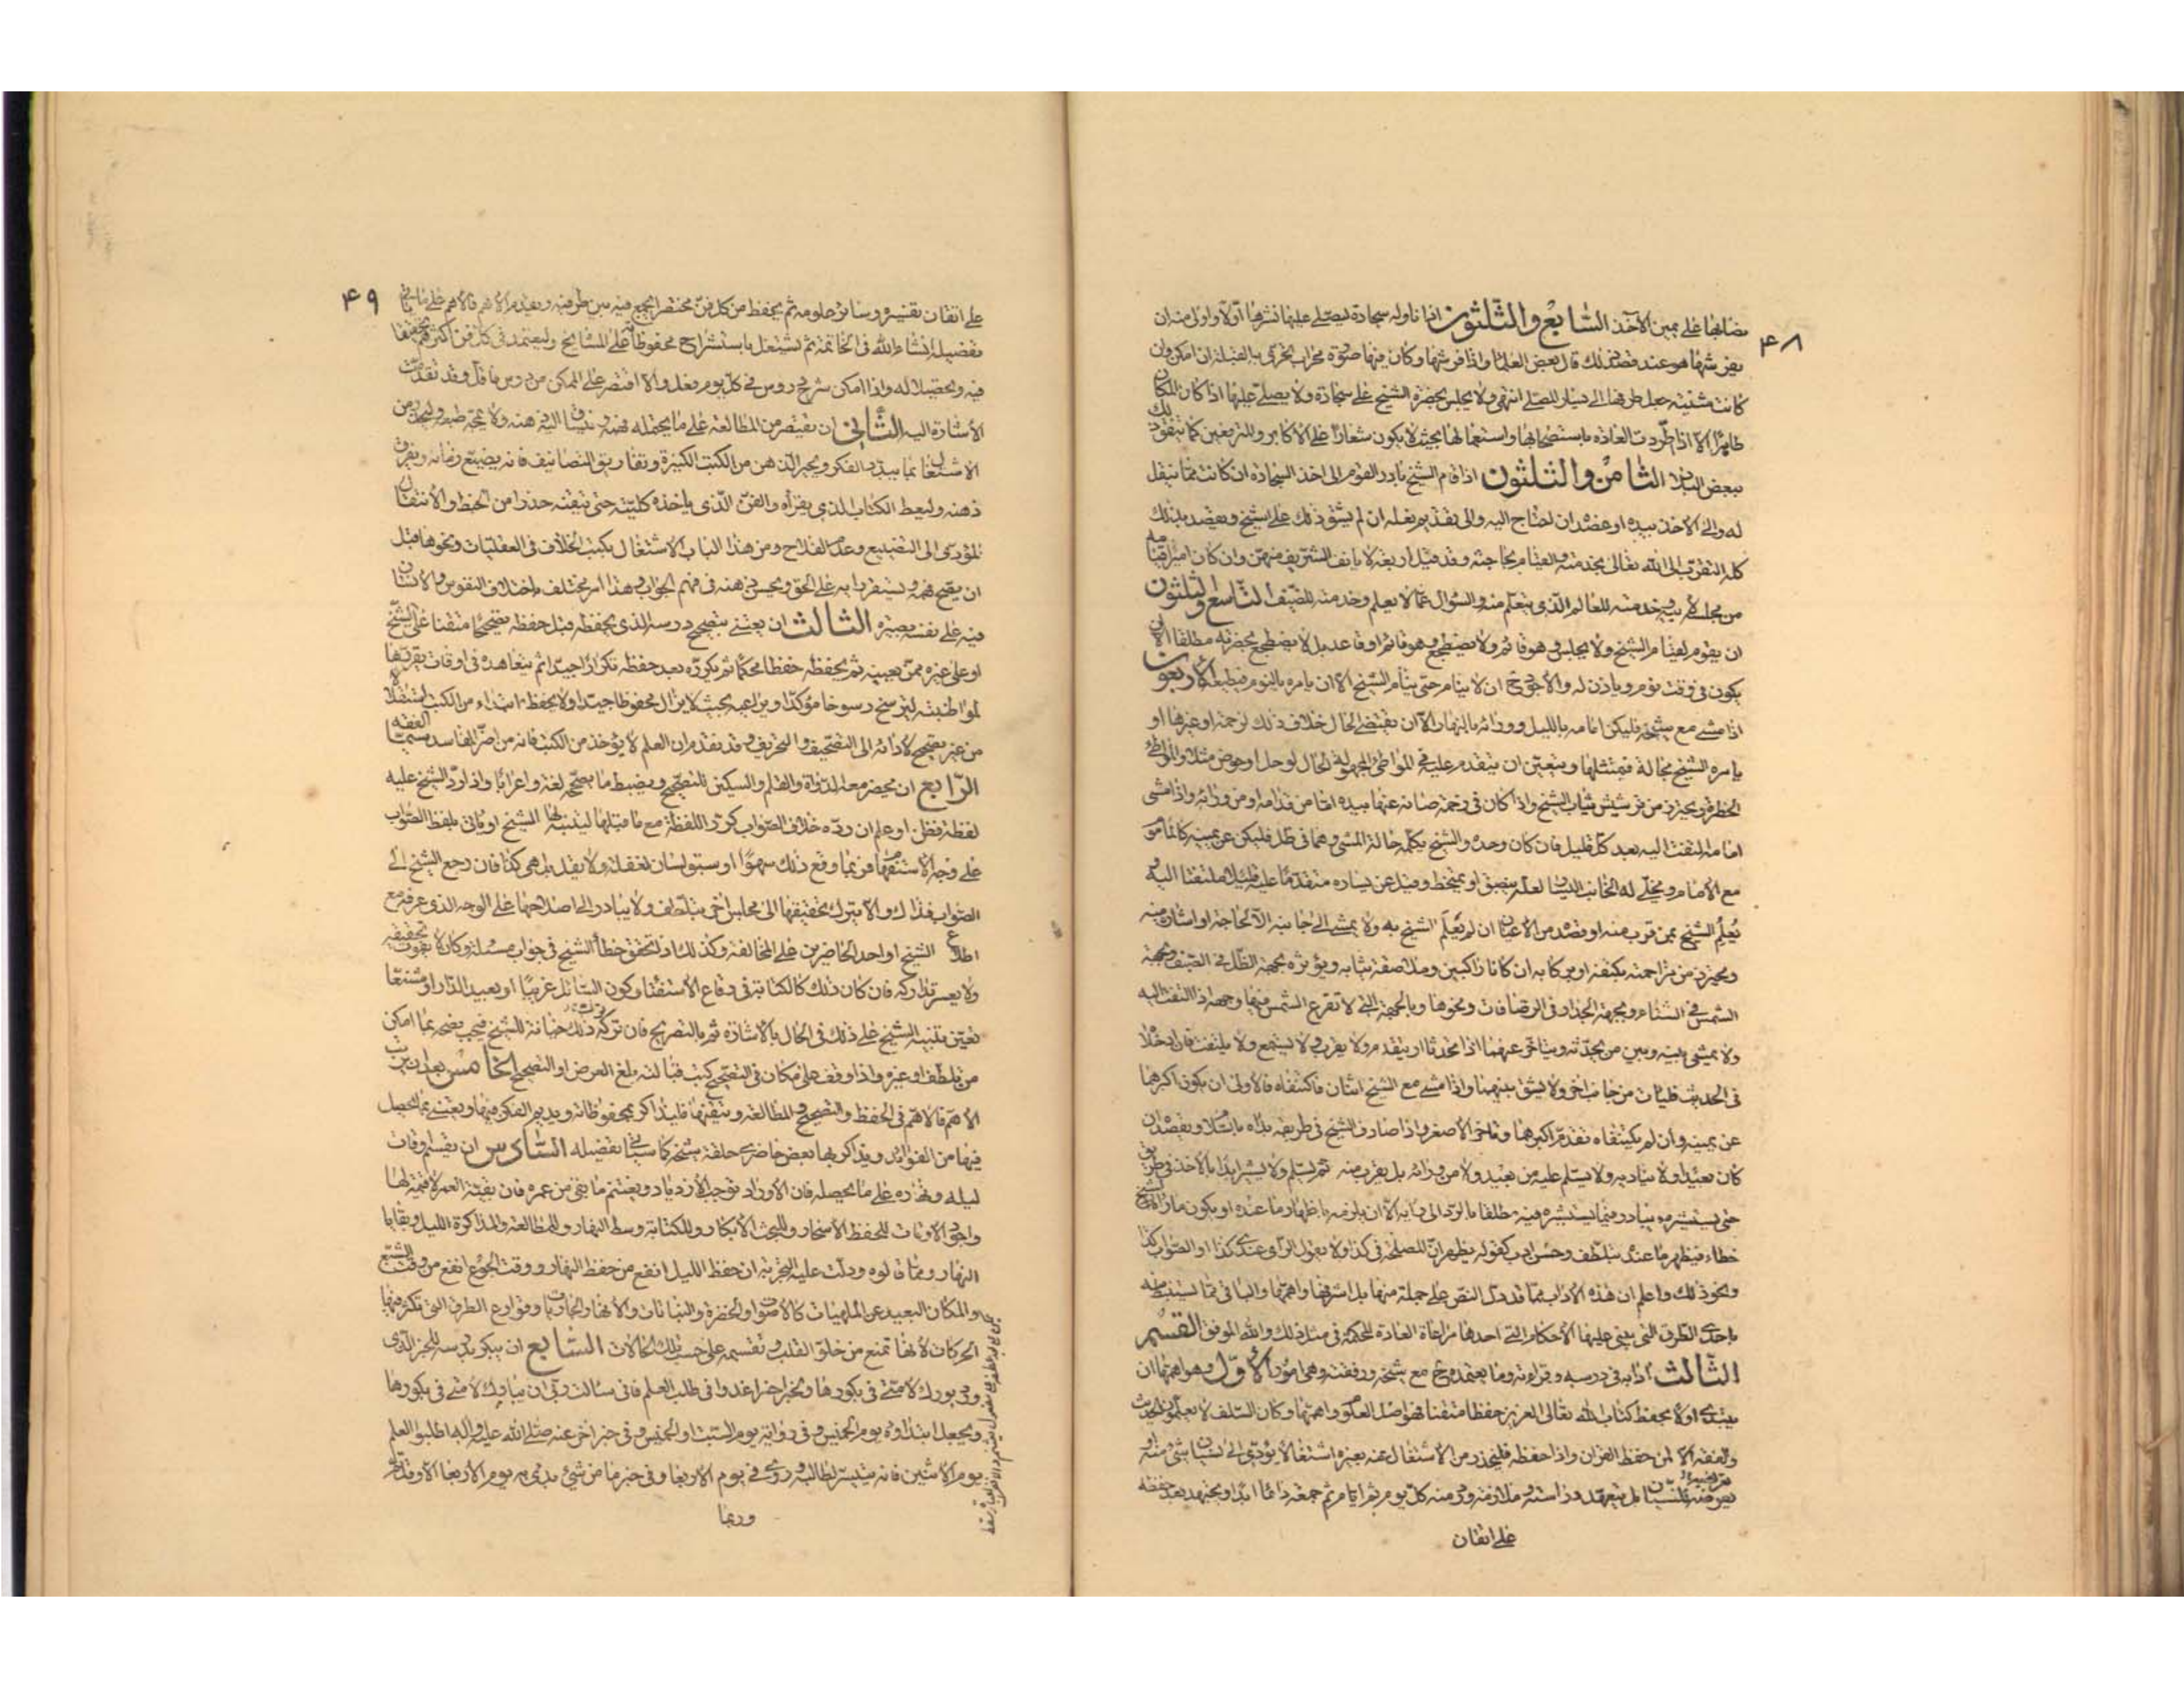 ٤٨
نصابها على يمين الآخذ السابع والثلثون اذا ناوله سجادة ليصلي عليها نشرها اولا واولى منه ان
يفرشها هو عند قصد ذلك قال بعض العلماء واذا فرشها وكان فيها صورة محراب تحرى به القبلة ان امكن وان
كانت مثنية جعل طرفها الى يسار المصلي انتهى ولا يجلس بحضرة الشيخ على سجادة ولا يصلي عليها اذا كان المكان
طاهرا الا اذا اطردت العادة باستصحابها واستعمالها بحيث لا يكون شعارا على الاكابر والمترفعين كما يتفق ذلك
ببعض البلاد الثامن والثلثون اذا قام الشيخ بادر القوم الى اخذ السجادة ان كانت مما تنقل
له والى الاخذ بيده او عضده ان احتاج اليه والى تقديم نعله ان لم يشق ذلك على الشيخ ويقصد بذلك
كله التقرب الى الله تعالى بخدمته والقيام بحاجته وقد قيل اربعة لا يانف الشريف منهن وان كان اميرا قيامه
من مجلسه لابيه وخدمته للعالم الذي يتعلم منه والسؤال عما لا يعلم وخدمته للضيف التاسع والثلثون
ان يقوم لقيام الشيخ ولا يجلس وهو قائم ولا يضطجع وهو قائم او قاعد بل لا يضطجع بحضرته مطلقا الا ان
يكون في وقت نوم وياذن له والاجود ح ان لا ينام حتى ينام الشيخ الا ان يامره بالنوم فيطيعه الاربعون
اذا مشى مع شيخه فليكن امامه بالليل ووراءه بالنهار الا ان يقتضي الحال خلاف ذلك لزحمة او غيرها او
يامره الشيخ بحالة فيمتثلها ويتعين ان يتقدم عليه في المواطئ المجهولة الحال لوحل او حوض مثلا والمواطئ
الخطرة ويحترز من ترشيش ثياب الشيخ واذا كان في زحمة صانه عنها بيده اما من قدامه او من ورائه واذا مشى
امامه التفت اليه بعد كل قليل فان كان وحده والشيخ يكلمه حالة المشي وهما في ظل فليكن عن يمينه كالماموم
مع الامام ويخلي له الجانب اليسار لعله يبصق او يمتخط وقيل عن يساره متقدما عليه قليلا ملتفتا اليه و
يعلم الشيخ بمن قرب منه او قصده من الاعيان ان لم يعلم الشيخ به ولا يمشي الى جانبه الا لحاجة او اشارة منه
ويحترز من مزاحمته بكتفه او بركابه ان كانا راكبين وملاصقة ثيابه ويؤثره بجهة الظل في الصيف وبجهة
الشمس في الشتاء وبجهة الجدار في الرصافات ونحوها وبالجهة التي لا تقرع الشمس فيها وجهه اذا التفت اليه
ولا يمشي بينه وبين من يحدثه ويتاخر عنهما اذا تحدثا او يتقدم ولا يقرب ولا يستمع ولا يلتفت فان ادخلاه
في الحديث فليات من جانب اخر ولا يشق بينهما واذا مشى مع الشيخ اثنان فاكتنفاه فالاولى ان يكون اكبرهما
عن يمينه وان لم يكتنفاه تقدم اكبرهما وتاخر الاصغر واذا صادف الشيخ في طريقه بداه بالسلام ويقصده ان
كان بعيدا ولا يناديه ولا يسلم عليه من بعيد ولا من ورائه بل يقرب منه ثم يسلم ولا يشير ابتداء بالاخذ في طريق
حتى يستشيره ويتادب فيما يستشيره فيه مطلقا بالرد الى رايه الا ان يلزمه باظهار ما عنده او يكون ما راه الشيخ
خطاء فيظهر ما عنده بتلطف وحسن ادب كقوله يظهر ان المصلحة في كذا ولا يقول الراي عندي كذا او الصواب كذا
ونحو ذلك واعلم ان هذه الاداب مما قد دل النص على جملة منها بل اشرفها واهمها والباقي مما يستنبط منه
باحدى الطرق التي يبني عليها الاحكام التي احدها مراعاة العادة المحكمة في مثل ذلك والله الموفق القسم
الثالث ادابه في درسه وقراءته وما يعتمده ح مع شيخه ورفقته وهي امور الاول وهو اهمها ان
يبتدي اولا بحفظ كتاب الله تعالى العزيز حفظا متقنا فهو اصل العلوم واهمها وكان السلف لا يعلمون الحديث
والفقه الا لمن حفظ القران واذا حفظه فليحذر من الاشتغال عنه بغيره اشتغالا يؤدي الى نسيان شيء منه او
تعريضه للنسيان بل يتعهد دراسته وملازمة ورد منه كل يوم ثم ايام ثم جمعة دائما ابدا ويجتهد بعد حفظه
على اتقان
٤٩
على اتقان تفسيره وسائر علومه ثم يحفظ من كل فن مختصرا يجمع فيه بين طرفيه ويقدم الاهم فالاهم على ما ياتي
تفصيله انشاء الله في الخاتمة ثم يشتغل باستشراح محفوظاته على المشايخ وليعتمد في كل فن اكثرهم تحقيقا
فيه وتحصيلا له واذا امكن شرح دروس في كل يوم فعل والا اقتصر على الممكن من درس فاقل وقد تقدمت
الاشارة اليه الثاني ان يقتصر من المطالعة على ما يحتمله فهمه وينساق اليه ذهنه ولا يمجه طبعه وليحذر من
الاشتغال بما يبدد الفكر ويحير الذهن من الكتب الكثيرة وتفاريق التصانيف فانه يضيع زمانه ويفرق
ذهنه وليعط الكتاب الذي يقراه والفن الذي ياخذه كليته حتى يتقنه حذرا من الخبط والانتقال
المؤدي الى التضييع وعدم الفلاح ومن هذا الباب الاشتغال بكتب الخلاف في العقليات ونحوها قبل
ان يصح فهمه ويستقر رايه على الحق ويحسن ذهنه في فهم الجواب وهذا امر يختلف باختلاف النفوس والانسان
فيه على نفسه بصيرة الثالث ان يعتني بتصحيح درسه الذي يحفظه قبل حفظه تصحيحا متقنا على الشيخ
او على غيره ممن يعينه ثم يحفظه حفظا محكما ثم يكرره بعد حفظه تكرارا جيدا ثم يتعاهده في اوقات يقررها
لمواظبته ليرسخ رسوخا مؤكدا ويراعيه بحيث لا يزال محفوظا جيدا ولا يحفظ ابتداء من الكتب استقلالا
من غير تصحيح لادائه الى التصحيف والتحريف وقد تقدم ان العلم لا يؤخذ من الكتب فانه من اضر المفاسد سيما الفقه
الرابع ان يحضر معه الدواة والقلم والسكين للتصحيح ويضبط ما يصححه لغة واعرابا واذا رد الشيخ عليه
لفظة فظن او علم ان رده خلاف الصواب كرر اللفظة مع ما قبلها ليتنبه لها الشيخ او ياتي بلفظ الصواب
على وجه الاستفهام فربما وقع ذلك سهوا او سبق لسان لغفلة ولا يقل بل هي كذا فان رجع الشيخ الى
الصواب فذاك والا ترك تحقيقها الى مجلس اخر بتلطف ولا يبادر الى اصلاحها على الوجه الذي عرفه مع
اطلاع الشيخ او احد الحاضرين على المخالفة وكذلك اذا تحقق خطا الشيخ في جواب مسئلة وكان لا يفوت تحقيقه
ولا يعسر تداركه فان كان ذلك كالكتابة في رقاع الاستفتاء وكون السائل غريبا او بعيد الدار او مشنعا
تعين تنبيه الشيخ على ذلك في الحال بالاشارة ثم بالتصريح فان ترك ذلك خيانة للشيخ فيجب نصحه بما امكن
من تلطف او غيره واذا وقف على مكان في التصحيح كتب قبالته بلغ العرض او التصحيح الخامس بعد ان يرتب
الاهم فالاهم في الحفظ والتصحيح والمطالعة ويتقنها فليذاكر بمحفوظاته ويديم الفكر فيها ويعتني بما يحصل
فيها من الفوائد ويذاكر بها بعض حاضري حلقة شيخه كما سياتي تفصيله السادس ان يقسم اوقات
ليله ونهاره على ما يحصله فان الاوراد توجب الازدياد ويغتنم ما بقي من عمره فان بقية العمر لا قيمة لها
واجود الاوقات للحفظ الاسحار وللبحث الابكار وللكتابة وسط النهار وللمطالعة والمذاكرة الليل وبقايا
النهار ومما قالوه ودلت عليه التجربة ان حفظ الليل انفع من حفظ النهار ووقت الجوع انفع من وقت الشبع
والمكان البعيد عن الملهيات كالاصوات والخضرة والنباتات والانهار الجاريات وقوارع الطرق التي تكثر فيها
الحركات لانها تمنع من خلو القلب وتقسمه على حسب تلك الحالات السابع ان يبكر بدرسه للخبر الذي
ورد بورك لامتي في بكورها ولخبر اخر اغدوا في طلب العلم فاني سالت ربي ان يبارك لامتي في بكورها
ويجعل ابتداؤه يوم الخميس وفي رواية يوم السبت او الخميس وفي خبر اخر عنه صلى الله عليه واله اطلبوا العلم
يوم الاثنين فانه ميسر لطالبه وروي في يوم الاربعا وفي خبر ما من شيء بدئ به يوم الاربعا الا وقد تم
وربما